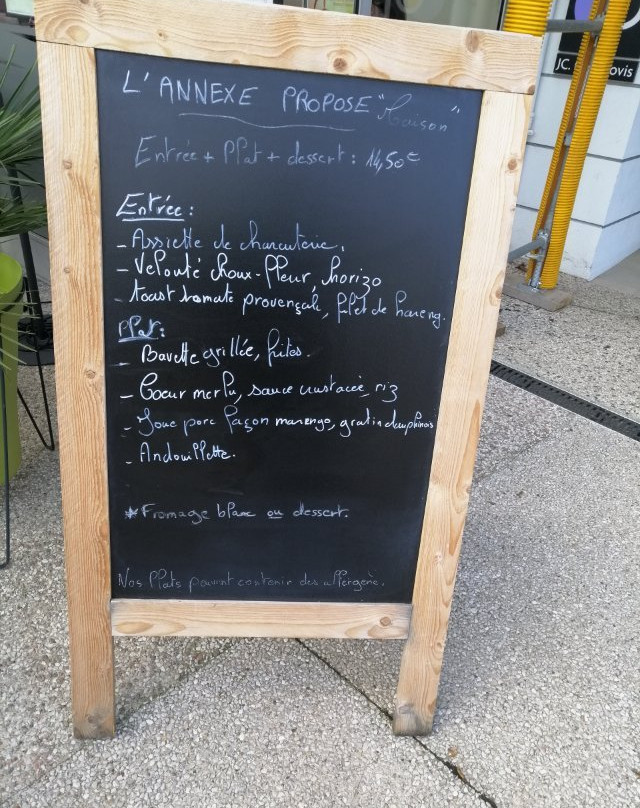 L'ANNEXE PROPOSE "Maison"
Entrée + Plat + dessert : 14,50€
Entrée :
- Assiette de charcuterie.
- Velouté choux-fleur, chorizo
- toast tomate provençale, filet de hareng.
Plat :
- Bavette grillée, frites.
- Coeur merlu, sauce crustacée, riz
- Joue porc façon marengo, gratin dauphinois
- Andouillette.
*Fromage blanc ou dessert.
Nos Plats peuvent contenir des allergène.
JC.
ovis